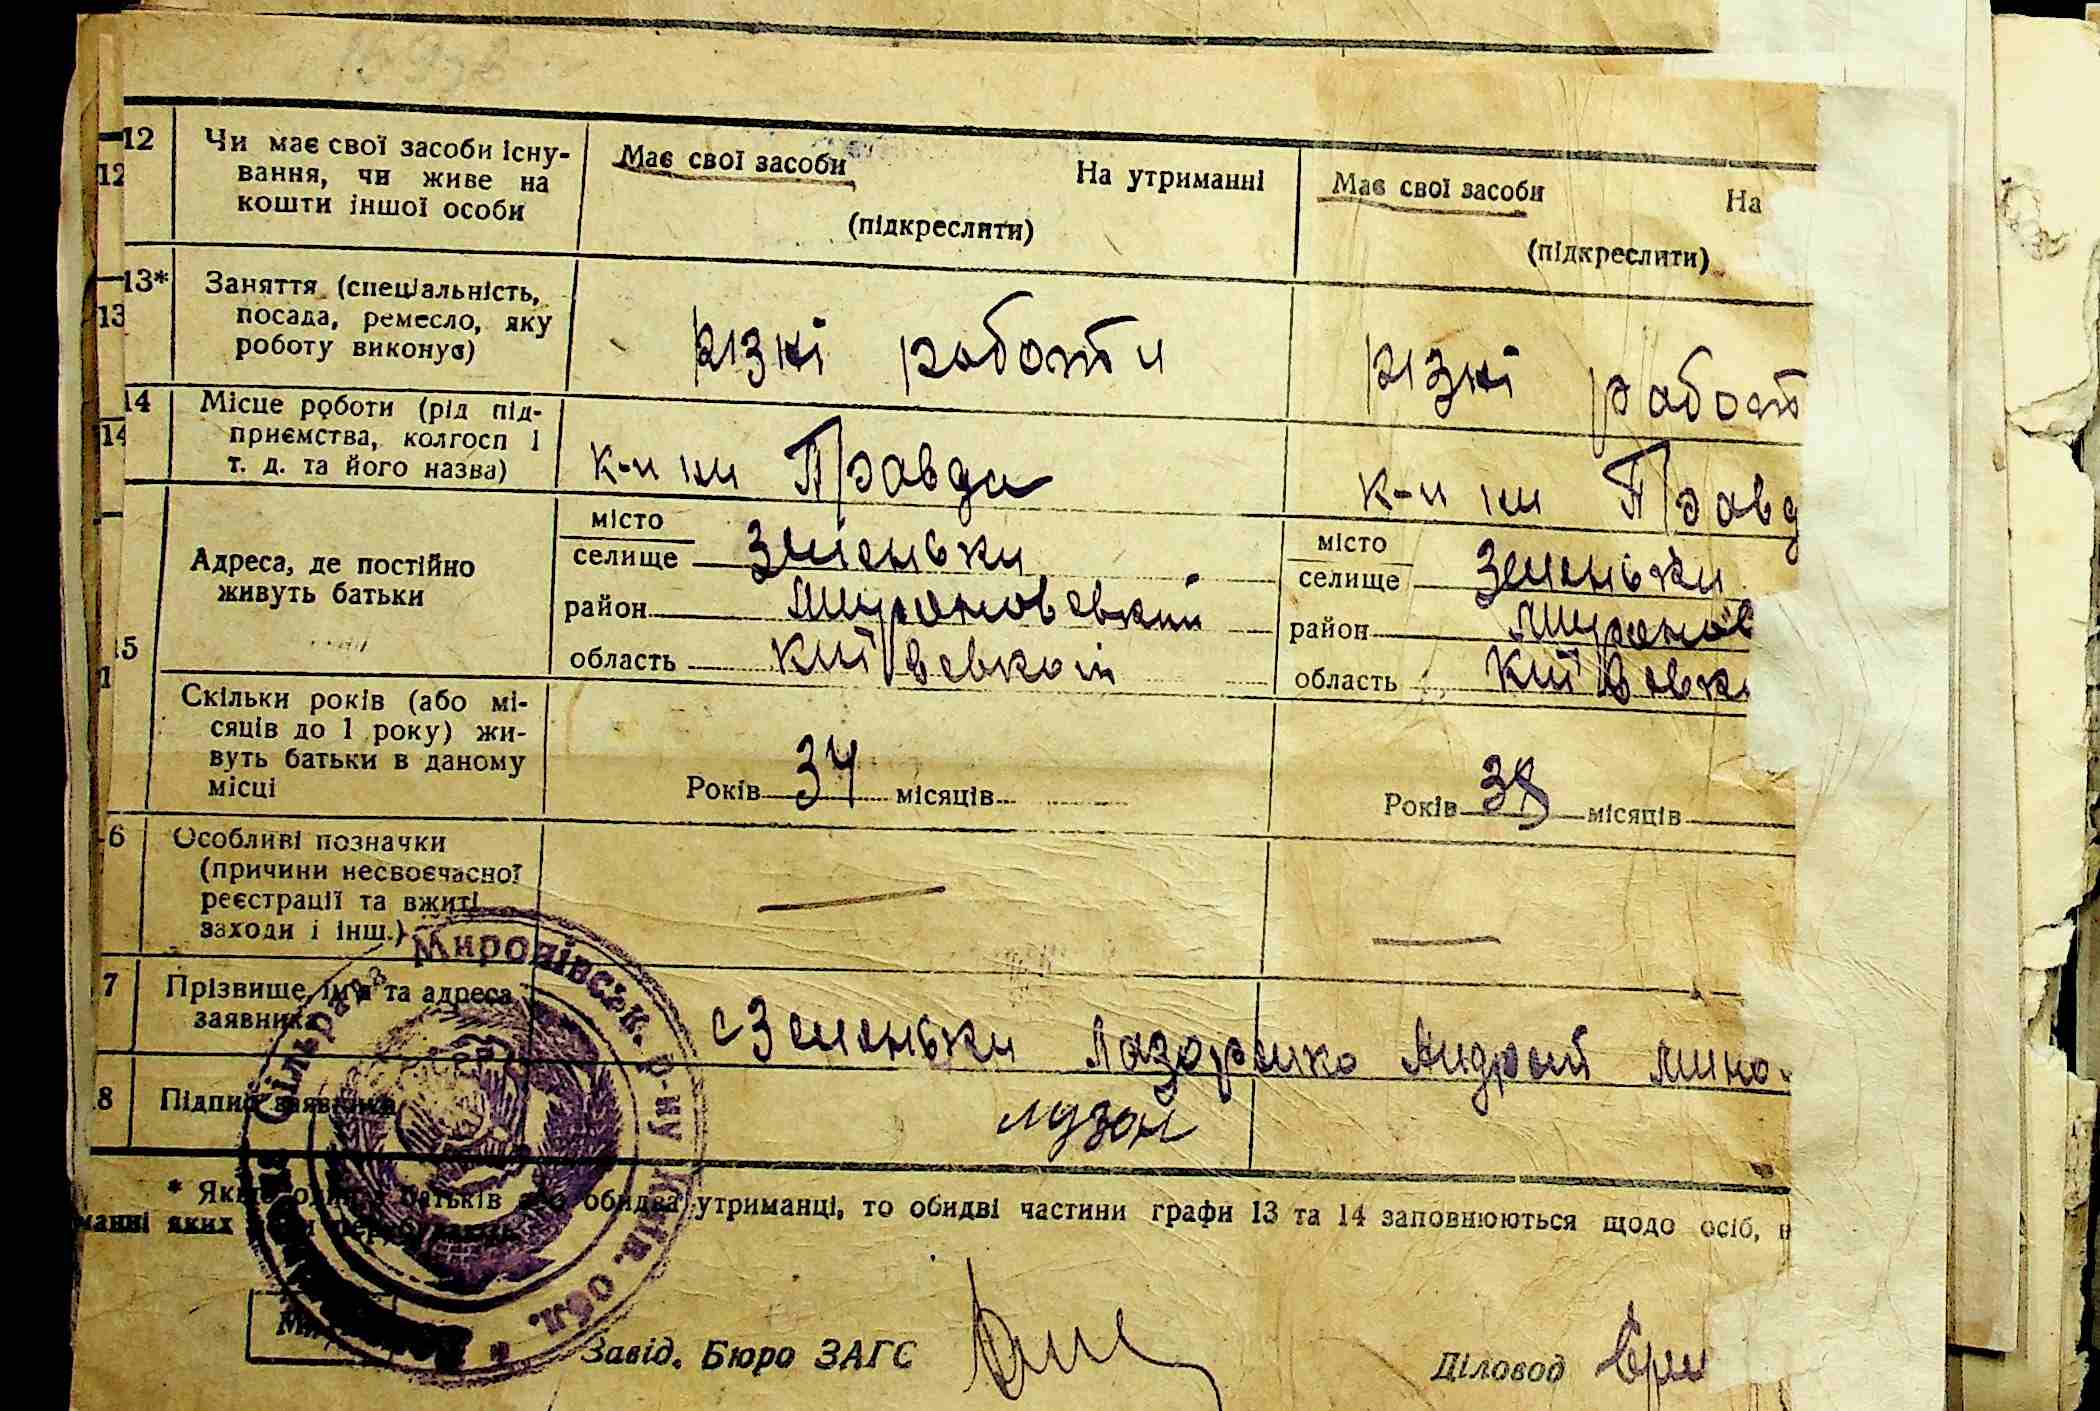 12 Чи має свої засоби існу- Має свої засоби На утриманні Має свої засоби На
12 вання, чи живе на
кошти іншої особи (підкреслити) (підкреслити)
13* Заняття (спеціальність,
13 посада, ремесло, яку різні роботи різні робот
роботу виконує)
14 Місце роботи (рід під-
14 приємства, колгосп і к-п ім Правда к-п ім Правд
т. д. та його назва)
місто місто
Адреса, де постійно селище Зеленьки селище Зеленьки
живуть батьки район Мироновський район Миронов
15 область Київської область Київськ
1
Скільки років (або мі-
сяців до 1 року) жи-
вуть батьки в даному
місці Років 34 місяців Років 38 місяців
6 Особливі позначки
(причини несвоєчасної
реєстрації та вжиті
заходи і інш.)
7 Прізвище, ім'я та адреса
заявника с Зеленьки Лазоренко Андрей
8 Підпис заявника
* Якщо один з батьків або обидва утриманці, то обидві частини графи 13 та 14 заповнюються щодо осіб, н
манні яких
Миронівськ. р-ну Київ. обл.
Завід. Бюро ЗАГС Діловод